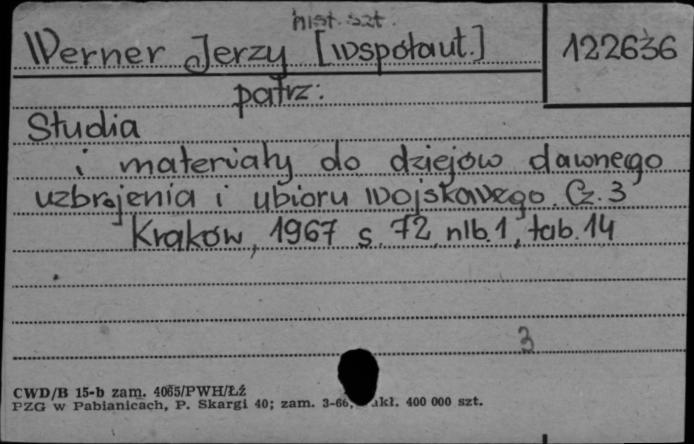 hist. szt.
Werner Jerzy [współaut.] 122636
patrz:
Studia
i materiały do dziejów dawnego
uzbrojenia i ubioru wojskowego. Cz. 3
Kraków, 1967 s. 72, nlb. 1, tab. 14
3
CWD/B 15-b zam. 4065/PWH/Łź
PZG w Pabianicach, P. Skargi 40; zam. 3-66, akł. 400 000 szt.